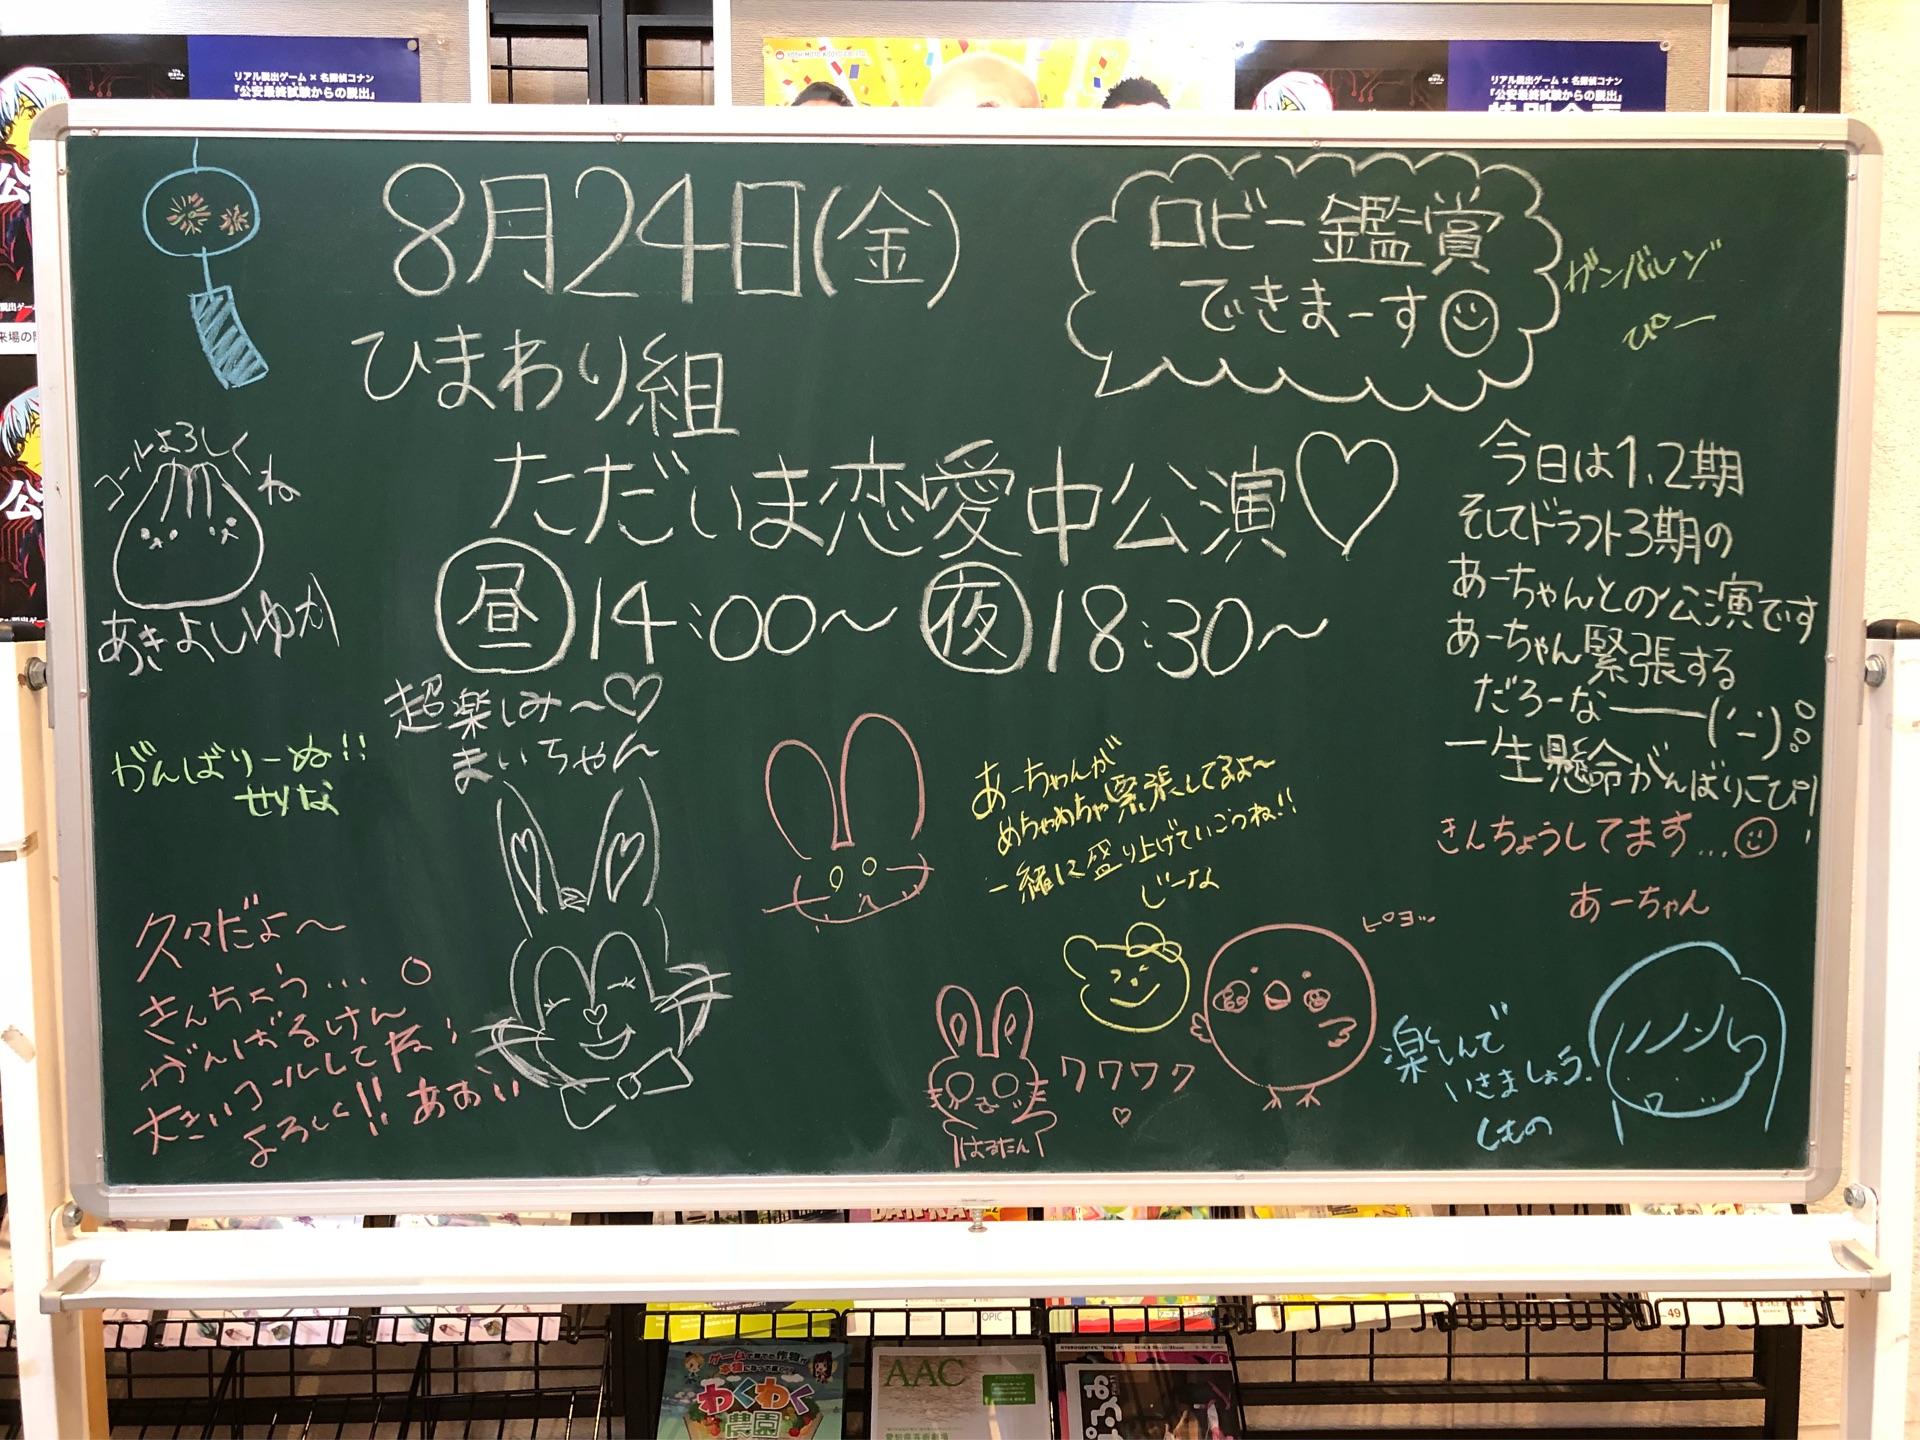 リアル脱出ゲーム×名探偵コナン
『公安最終試験からの脱出』
リアル脱出ゲーム×名探偵コナン
『公安最終試験からの脱出』
8月24日(金)
ひまわり組
ただいま恋愛中公演♡
昼 14:00～ 夜 18:30～
ロビー鑑賞
できまーす
ガンバレン゛
ぴー
コールよろしくね
あきよしゆか
がんばりーぬ!!
せりな
超楽しみ～♡
まいちゃん
久々だよ～
きんちょう...
がんばるけん
大きいコールしてね!
よろしく!! あおい
あーちゃんが
めちゃめちゃ緊張してるよ～
一緒に盛り上げていこうね!!
じーな
ワワワワ
♡
はるたん
ピヨッ
今日は1.2期
そしてドラフト3期の
あーちゃんとの公演です
あーちゃん緊張する
だろーなー
一生懸命がんばりこぴ!!
きんちょうしてます...
あーちゃん
楽しんで
いきましょう!
くもの
ゲームで育てた作物が
わくわく
農園
AAC
TOPIC
49